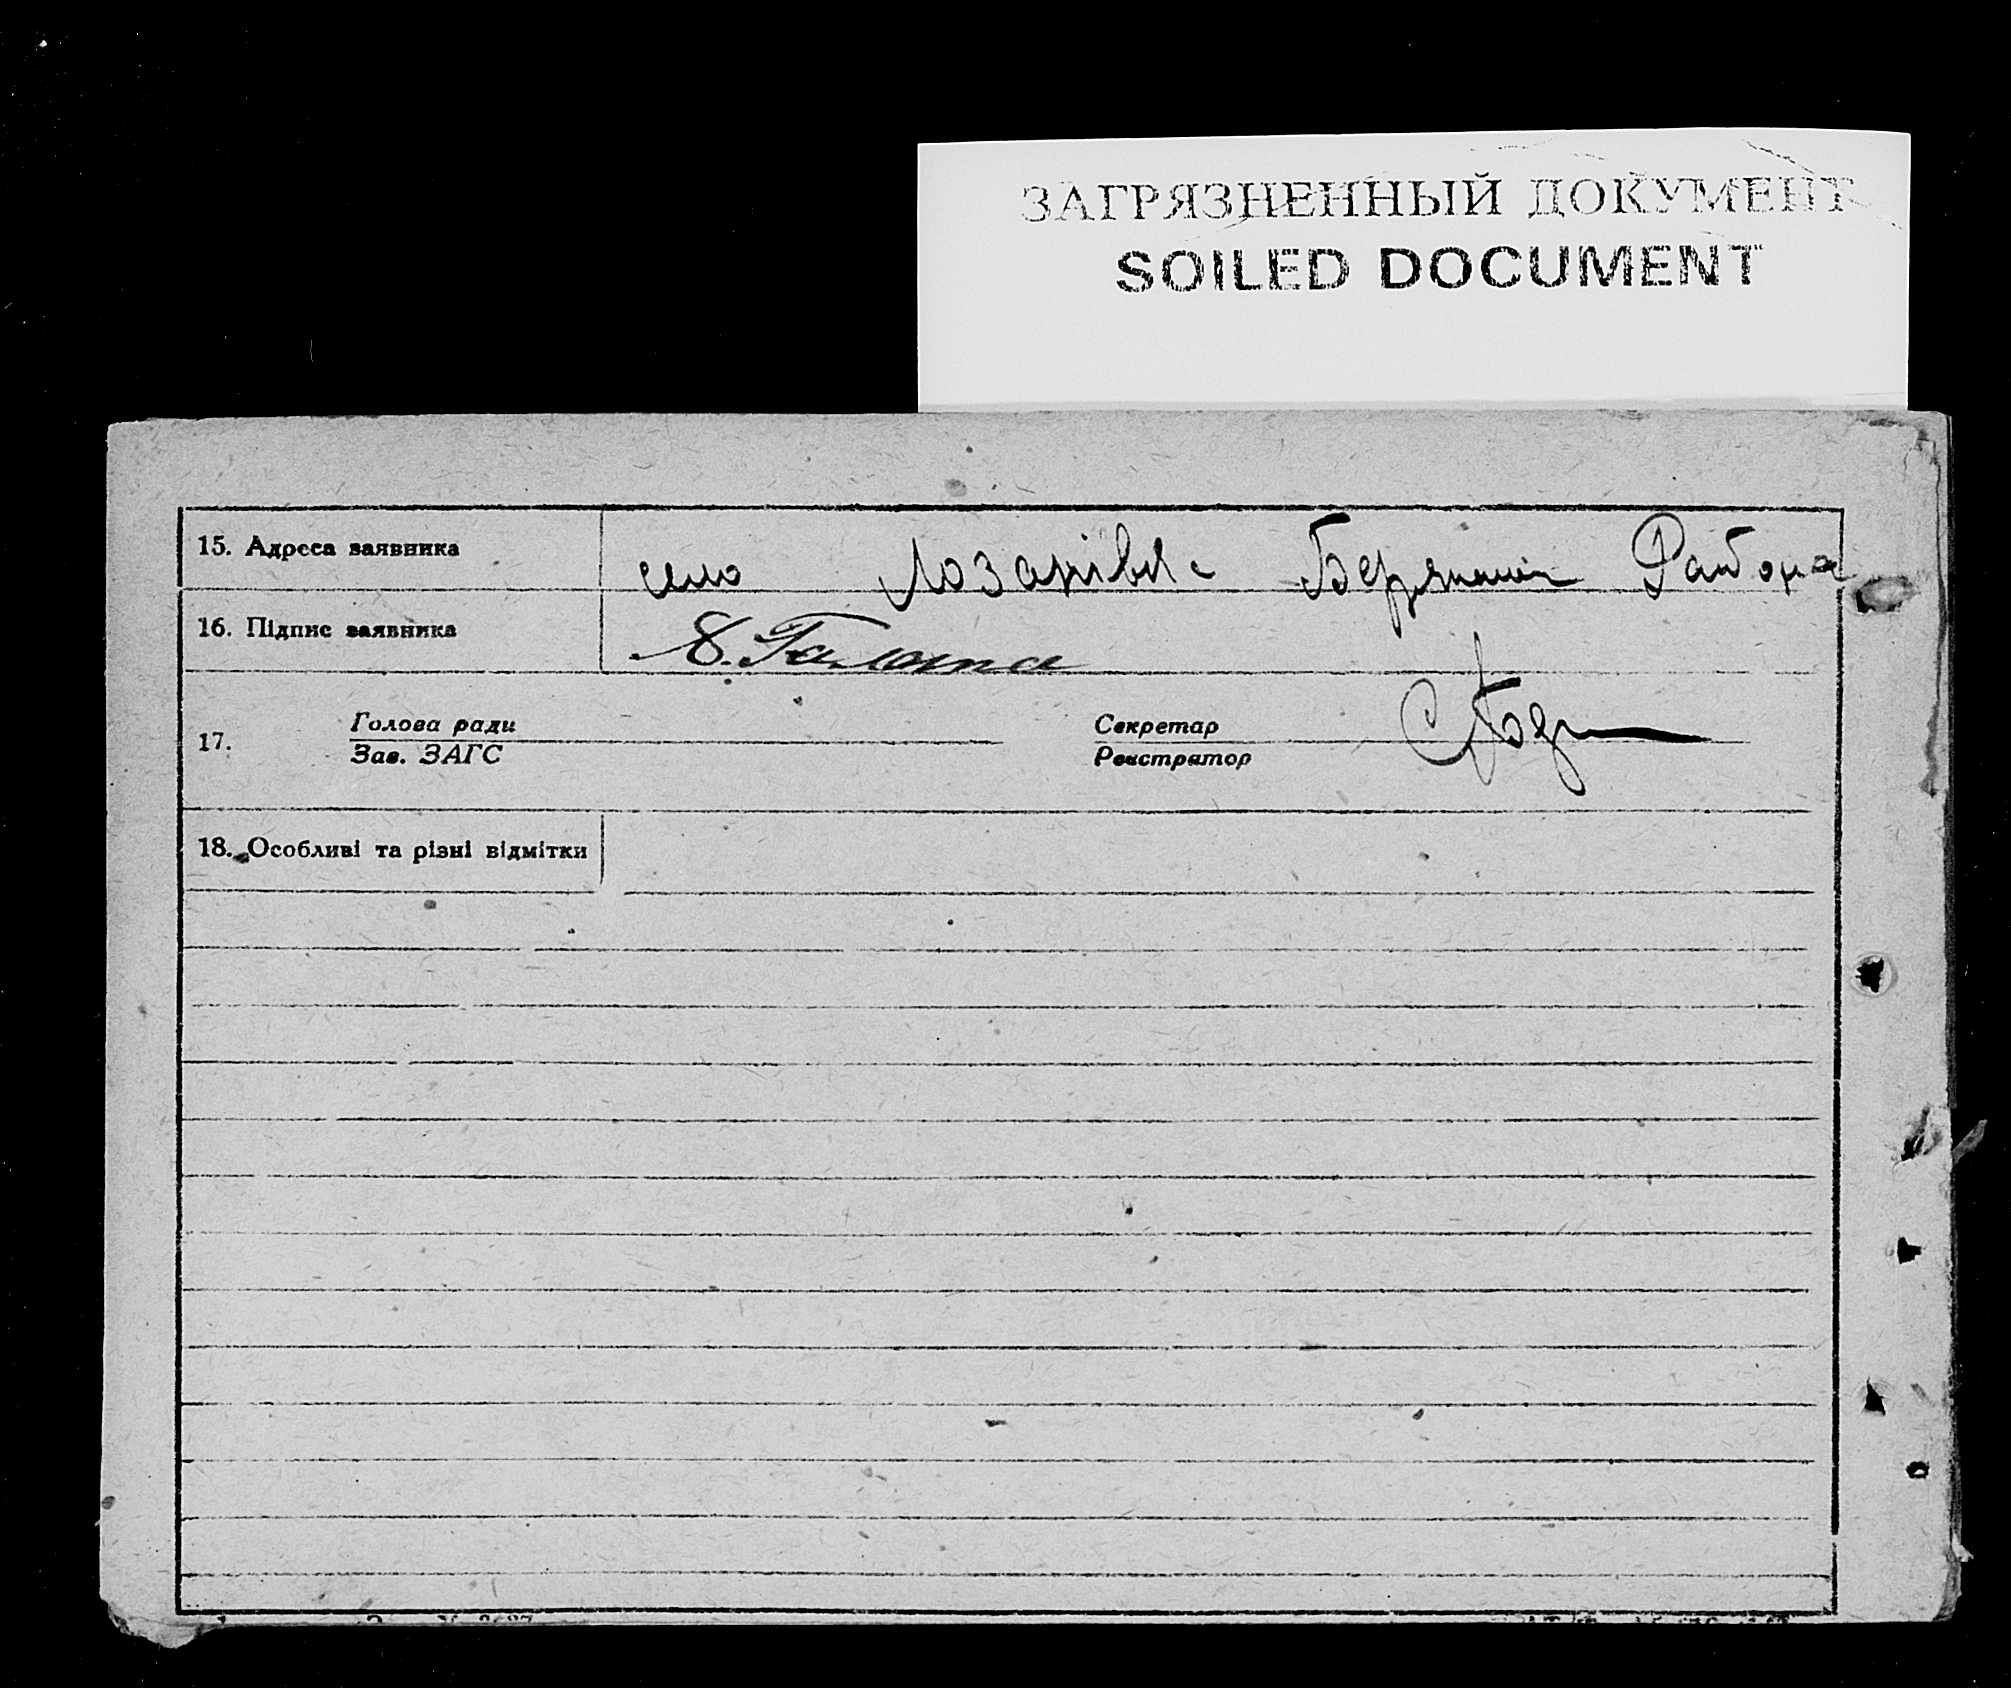 ЗАГРЯЗНЕННЫЙ ДОКУМЕНТ
SOILED DOCUMENT
15. Адреса заявника
село Лозанівка Района
16. Підпис заявника
Галота
17.
Голова ради
Зав. ЗАГС
Секретар
Реєстратор
18. Особливі та різні відмітки